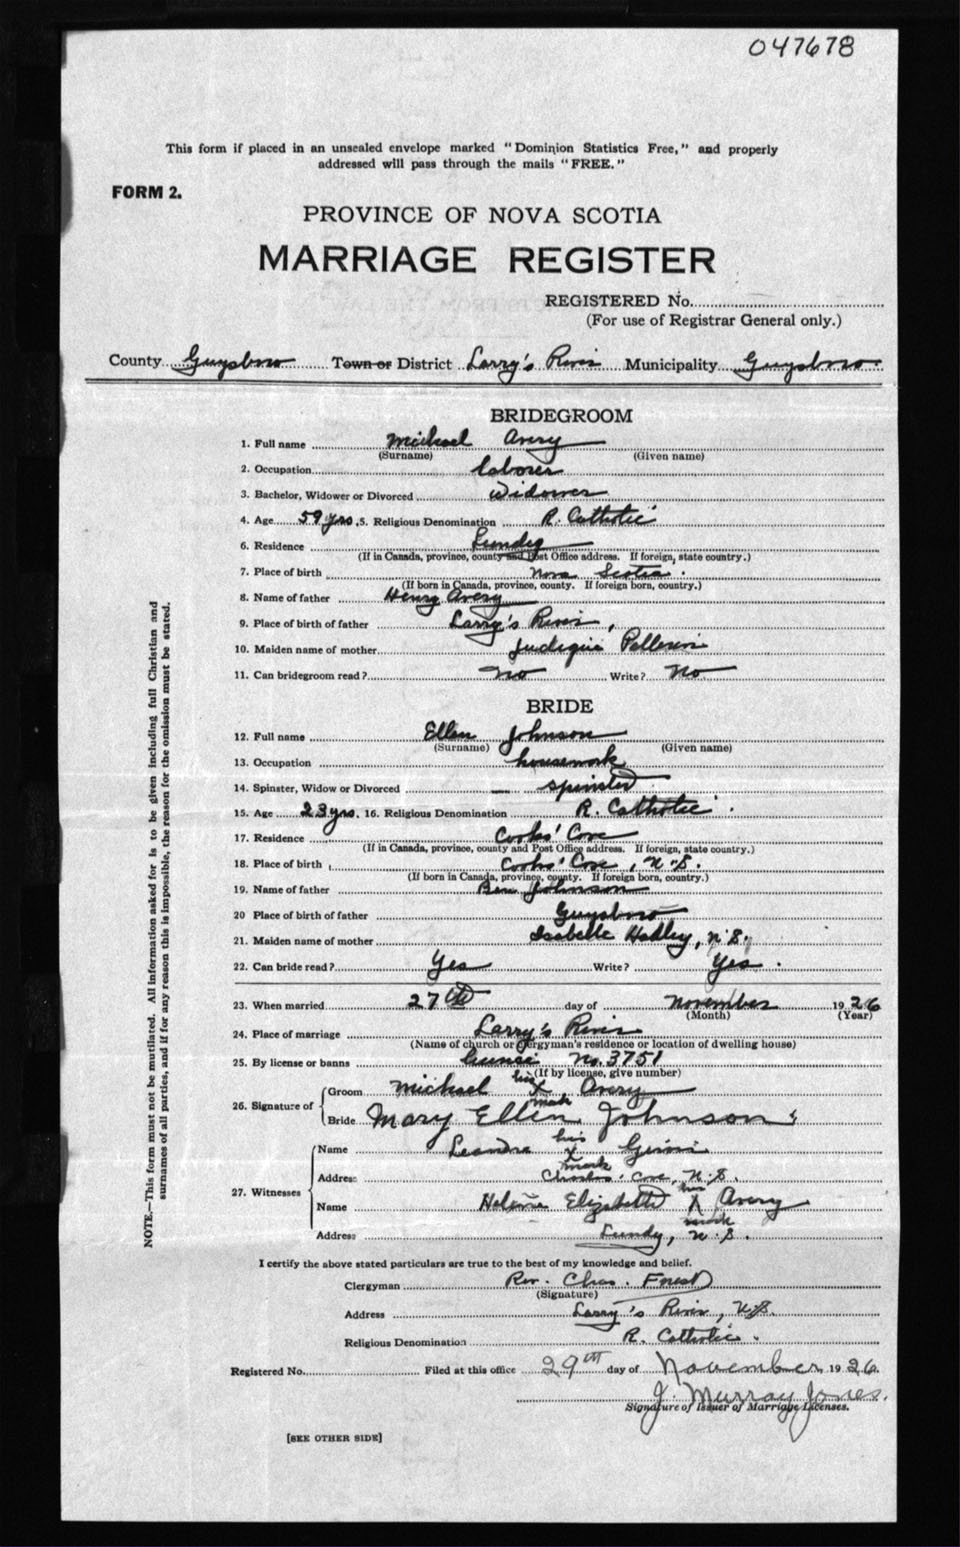 047678
This form if placed in an unsealed envelope marked "Dominion Statistics Free," and properly
addressed will pass through the mails "FREE."
FORM 2.
PROVINCE OF NOVA SCOTIA
MARRIAGE REGISTER
REGISTERED No.
(For use of Registrar General only.)
County Guysboro Town or District Larry's River Municipality Guysboro
BRIDEGROOM
1. Full name Michael Avery
(Surname) (Given name)
2. Occupation laborer
3. Bachelor, Widower or Divorced widower
4. Age 59 yrs. 5. Religious Denomination R. Catholic
6. Residence Lundy
(If in Canada, province, county and Post Office address. If foreign, state country.)
7. Place of birth Nova Scotia.
(If born in Canada, province, county. If foreign born, country.)
8. Name of father Henry Avery
9. Place of birth of father Larry's River,
10. Maiden name of mother Pellerin
11. Can bridegroom read? No Write? No
BRIDE
12. Full name Ellen Johnson
(Surname) (Given name)
13. Occupation housework
14. Spinster, Widow or Divorced — spinster
15. Age 23 yrs. 16. Religious Denomination R. Catholic.
17. Residence Cooks' Cove
(If in Canada, province, county and Post Office address. If foreign, state country.)
18. Place of birth Cooks' Cove, N.S.
(If born in Canada, province, county. If foreign born, country.)
19. Name of father Ben Johnson
20 Place of birth of father Guysboro
21. Maiden name of mother Isabelle Hadley, N.S.
22. Can bride read? Yes Write? Yes.
23. When married 27th day of November 1926
(Month) (Year)
24. Place of marriage Larry's River
(Name of church or clergyman's residence or location of dwelling house)
25. By license or banns License No. 3751
(If by license, give number)
26. Signature of
Groom Michael his X mark Avery
Bride Mary Ellen Johnson
27. Witnesses
Name Leandre his X mark
Address Charlos Cove, N.S.
Name Elizabeth his X mark Avery
Address Lundy, N.S.
I certify the above stated particulars are true to the best of my knowledge and belief.
Clergyman Rev. Chas. Forest
(Signature)
Address Larry's River, N.S.
Religious Denomination R. Catholic.
Registered No. Filed at this office 29th day of November 1926.
J. Murray Jones.
Signature of Issuer of Marriage Licenses.
[SEE OTHER SIDE]
NOTE.—This form must not be mutilated. All information asked for is to be given including full Christian and
surnames of all parties, and if for any reason this is impossible, the reason for the omission must be stated.